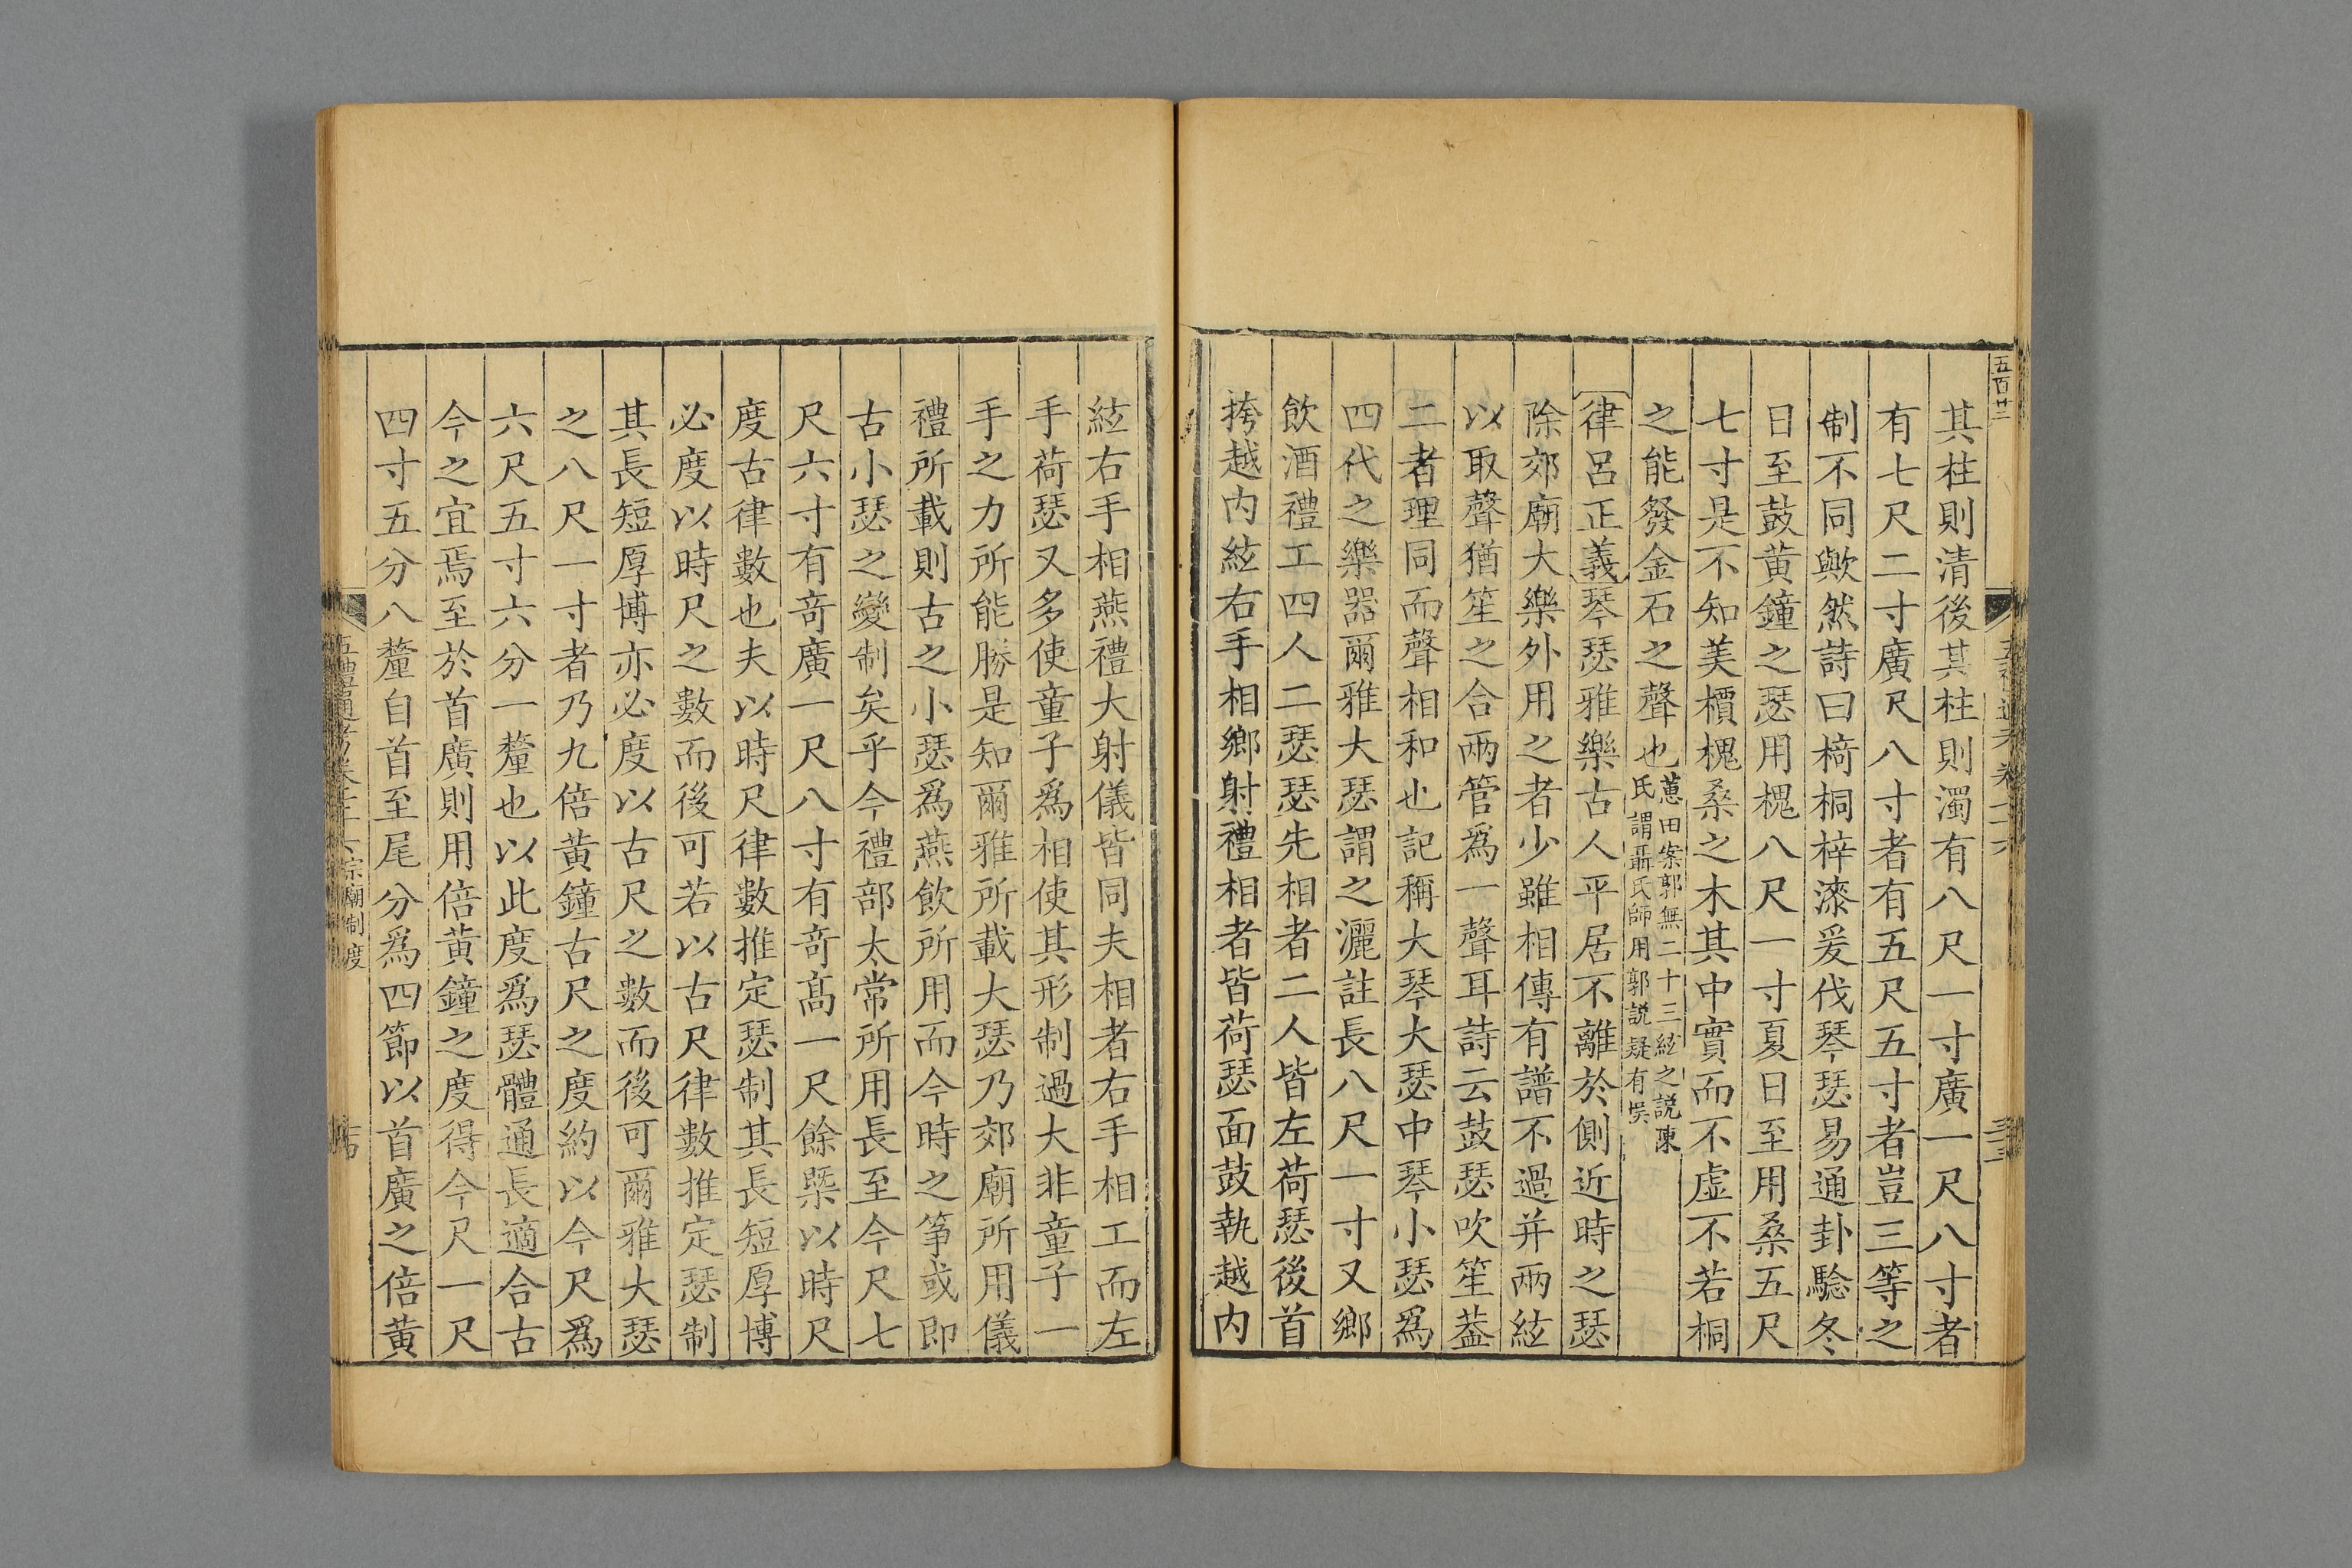 五百廿二
其柱則清後其柱則濁有八尺一寸廣一尺八寸者
有七尺二寸廣尺八寸者有五尺五寸者豈三等之
制不同歟然詩曰椅桐梓漆爰伐琴瑟易通卦驗冬
日至鼓黃鐘之瑟用槐八尺一寸夏日至用桑五尺
七寸是不知美檟槐桑之木其中實而不虚不若桐
之能發金石之聲也
蕙田案郭無二十三絃之説陳
氏謂聶氏師用郭説疑有悞
律呂正義琴瑟雅樂古人平居不離於側近時之瑟
除郊廟大樂外用之者少雖相傳有譜不過并兩絃
以取聲猶笙之合兩管爲一聲耳詩云鼓瑟吹笙葢
二者理同而聲相和也記稱大琴大瑟中琴小瑟爲
四代之樂器爾雅大瑟謂之灑註長八尺一寸又鄉
飲酒禮工四人二瑟瑟先相者二人皆左荷瑟後首
挎越内絃右手相鄉射禮相者皆荷瑟面鼓執越内
絃右手相燕禮大射儀皆同夫相者右手相工而左
手荷瑟又多使童子爲相使其形制過大非童子一
手之力所能勝是知爾雅所載大瑟乃郊廟所用儀
禮所載則古之小瑟爲燕飲所用而今時之筝或即
古小瑟之變制矣乎今禮部太常所用長至今尺七
尺六寸有竒廣一尺八寸有竒髙一尺餘槩以時尺
度古律數也夫以時尺律數推定瑟制其長短厚博
必度以時尺之數而後可若以古尺律數推定瑟制
其長短厚博亦必度以古尺之數而後可爾雅大瑟
之八尺一寸者乃九倍黃鐘古尺之度約以今尺爲
六尺五寸六分一釐也以此度爲瑟體通長適合古
今之宜焉至於首廣則用倍黃鐘之度得今尺一尺
四寸五分八釐自首至尾分爲四節以首廣之倍黃
五禮通考卷 宗廟制度